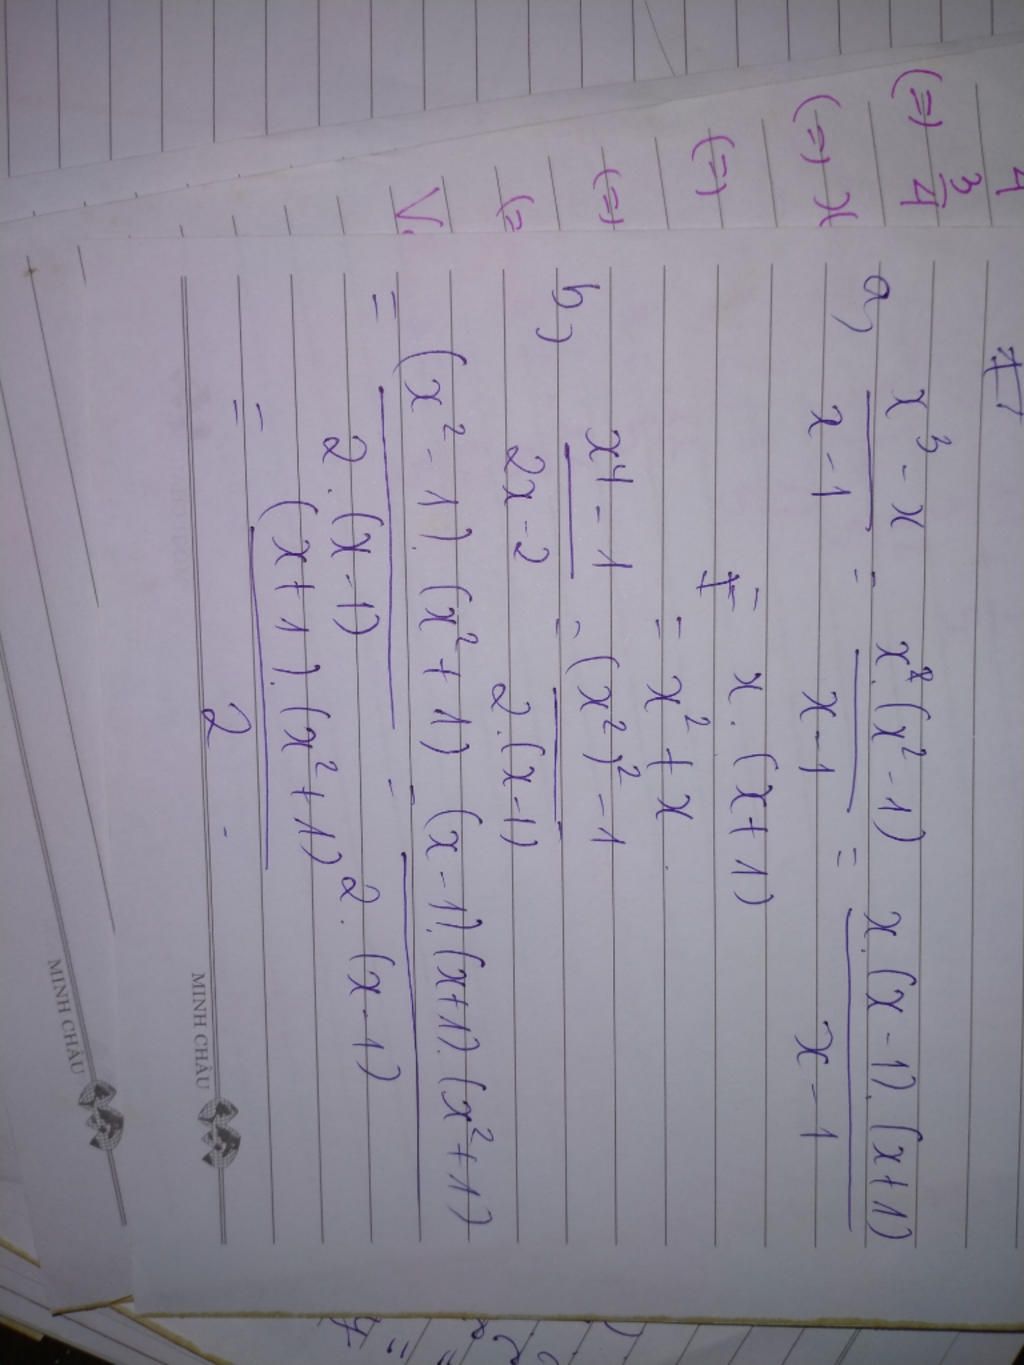 a, x³ - x / x - 1 = x.(x² - 1) / x - 1 = x.(x - 1).(x + 1) / x - 1
= x.(x + 1)
= x² + x.
b, x⁴ - 1 / 2x - 2 = (x²)² - 1 / 2.(x - 1)
= (x² - 1).(x² + 1) / 2.(x - 1) = (x - 1).(x + 1).(x² + 1) / 2.(x - 1)
= (x + 1).(x² + 1) / 2.
MINH CHÂU
MINH CHÂU
4
(=) 3/4
(=) x
(=)
(=)
(=
V.